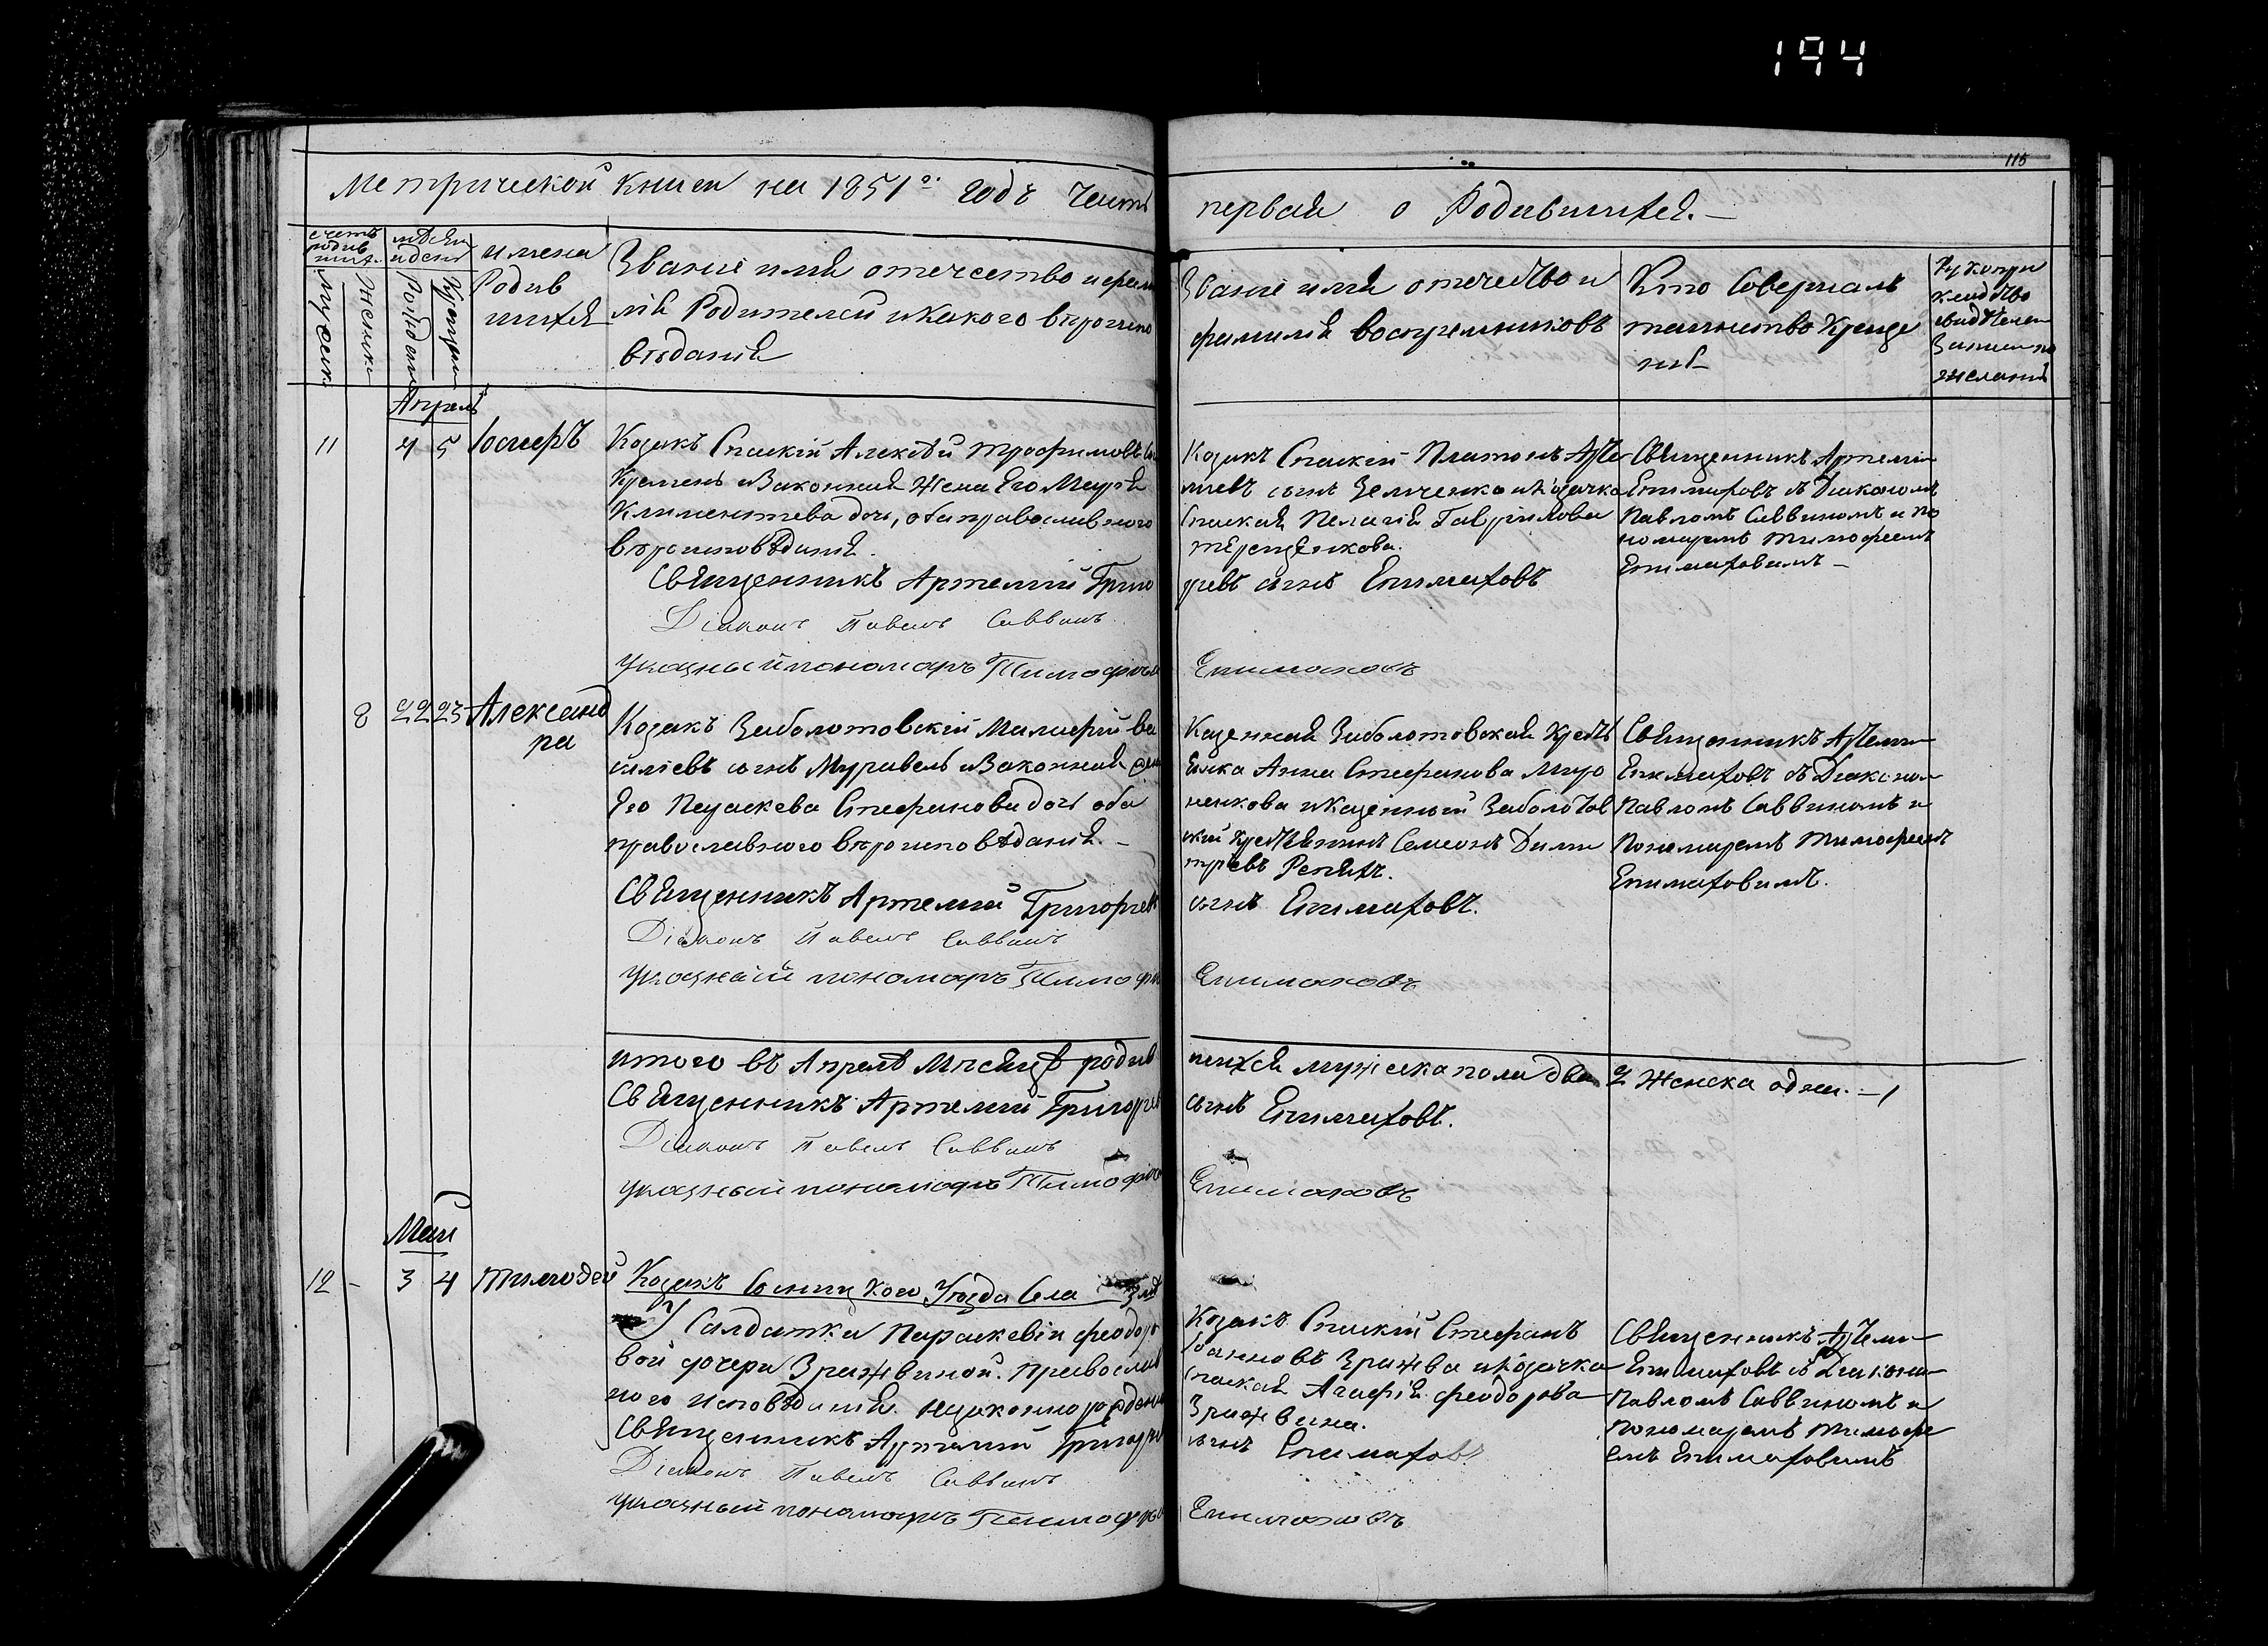 194
115
Метрической книги на 1851й годъ Часть
первая о Родившихся. —
счетъ родившихся
мѣсяцъ и день
имена
Родив
шихся
Мужеск
Женски
Рожденія
Крещенія
Званіе имя отечество и фами
лія Родителей и Какого вѣроиспо
вѣданія
Званіе имя отечество и
фамилія воспріемниковъ
Кто Совершалъ
таинство Креще
нія
Рукопри
кладство
свидѣтелей
Записи по
желанію
Апрель
11 4 5 Іосифъ
Козакъ Спаскій Алексѣй Трофимовъ
Кремень и Законная Жена Его Марія
Климентева дочь, оба православного
вѣроисповѣданія.
Священникъ Артемій Григо
Діаконъ Павелъ Саввинъ
Указный пономаръ Тимофѣй
Козакъ Спаскій Платонъ Арте
міевъ сынъ Зельченко и Козачка
Спаская Пелагія Гавріилова
Терещенкова.
ріевъ сынъ Епимаховъ
Епимаховъ
Священникъ Артемій
Епимаховъ съ Діакономъ
Павломъ Саввиномъ и по
номаремъ Тимофеемъ
Епимаховимъ —
8 22 23 Александ
ра
Козакъ Заболотовскій Малафій Ва
силіевъ сынъ Муравель и Законная Жена
Его Параскева Стефанова дочь оба
православного вѣроисповѣданія. —
Священникъ Артемій Григоріевъ
Діаконъ Павелъ Саввинъ
Указный пономаръ Тимофѣй
Казенная Заболотовская Крестя
янка Анна Стефанова Миро
ненкова и Казенный Заболотов
скій Крестянинъ Семіонъ Дими
тріевъ Репяхъ.
сынъ Епимаховъ.
Епимаховъ
Священникъ Артемій
Епимаховъ съ Діакономъ
Павломъ Саввиномъ и
Пономаремъ Тимофеемъ
Епимаховимъ.
итого въ Апрелѣ Мѣсяцѣ родив
шихся мужеска пола два 2 Женска одна. — 1
Священникъ Артемій Григоріев
сынъ Епимаховъ.
Діаконъ Павелъ Саввинъ
Указный пономаръ Тимофѣй
Епимаховъ
Маія
12 - 3 4 Тимофей
Козакъ Сосницкого Уѣзда Села
У Салдатки Параскевіи Феодоро
вой дочери Зражвиной. православ
ного исповѣданія. незаконнорожденый
Священникъ Артемій Григоріе
Діаконъ Павелъ Саввинъ
Указный пономаръ Тимофѣй
Козакъ Спаскій Стефанъ
Іоанновъ Зражва и Козачка
Спаская Агафія Феодорова
Зражвина.
сынъ Епимаховъ
Епимаховъ
Священникъ Артемій
Епимаховъ съ Діакономъ
Павломъ Саввиномъ и
Пономаремъ Тимофе
емъ Епимаховимъ